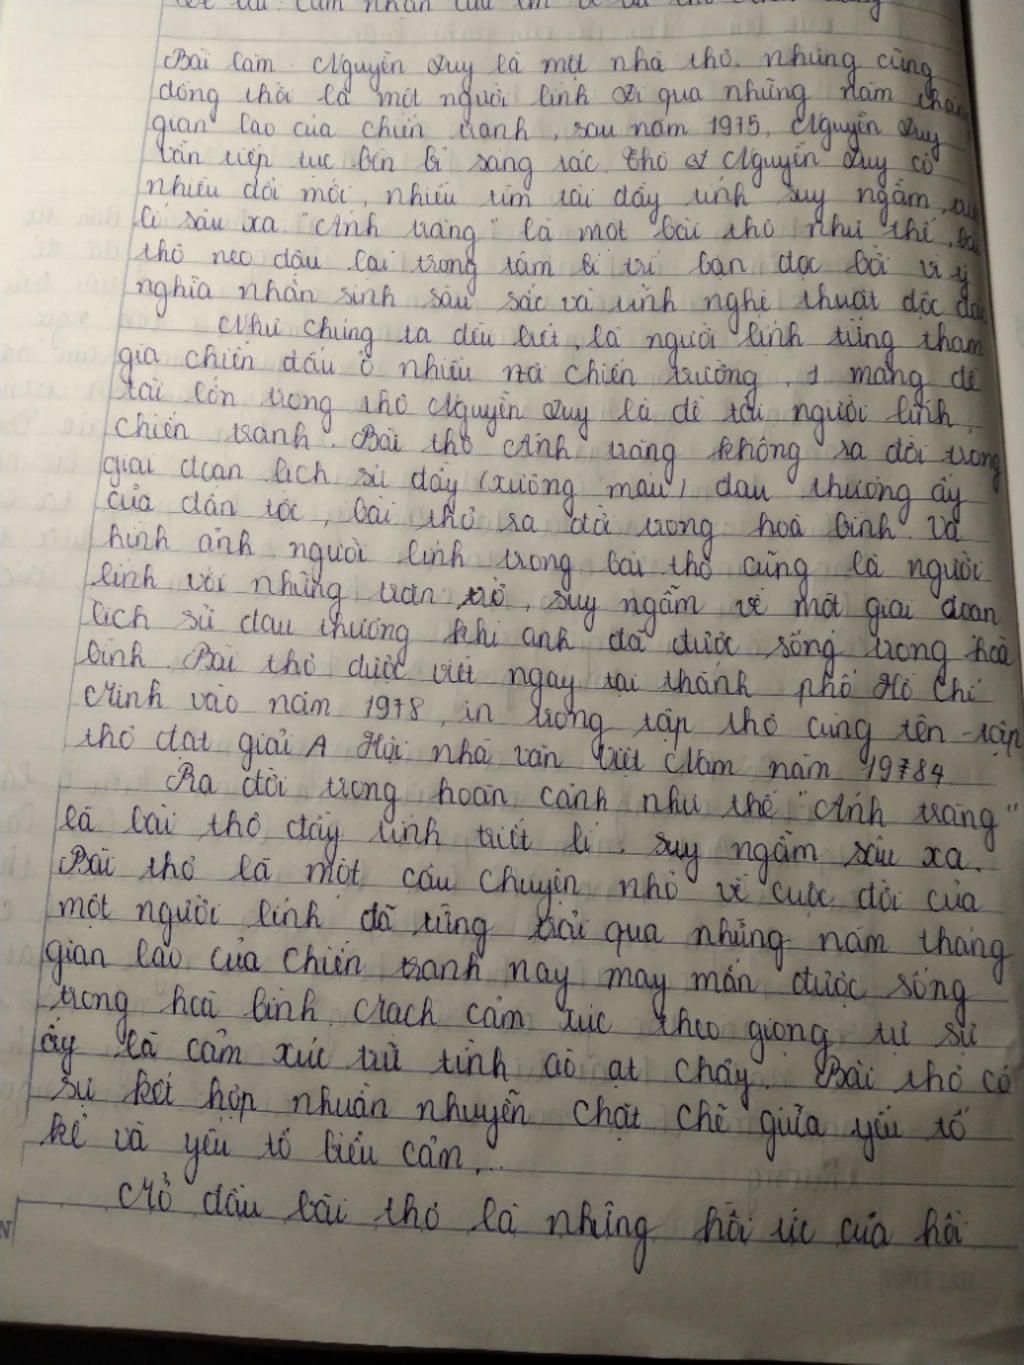 Bài làm. Nguyễn Duy là một nhà thơ. nhưng cũng
đồng thời là một người lính đi qua những năm tháng
gian lao của chiến tranh, sau năm 1975, Nguyễn Duy
vẫn tiếp tục bền bỉ sáng tác. Thơ Nguyễn Duy có
nhiều đổi mới, nhiều tìm tòi đầy tính suy ngẫm,
lí sâu xa. "Ánh trăng" là một bài thơ như thế, bài
thơ neo đậu lại trong tâm trí bạn đọc bởi vì ý
nghĩa nhân sinh sâu sắc và tính nghệ thuật độc đáo
Như chúng ta đều biết, là người lính từng tham
gia chiến đấu ở nhiều nơi chiến trường, 1 mảng đề
tài lớn trong thơ Nguyễn Duy là đề tài người lính
chiến tranh. Bài thơ Ánh trăng không ra đời trong
giai đoạn lịch sử đầy (xương máu) đau thương ấy
của dân tộc, bài thơ ra đời trong hoà bình. Và
hình ảnh người lính trong bài thơ cũng là người
lính với những trăn trở, suy ngẫm về một giai đoạn
lịch sử đau thương khi anh đã được sống trong hoà
bình. Bài thơ được viết ngay tại thành phố Hồ Chí
Minh vào năm 1978, in trong tập thơ cùng tên - tập
thơ đạt giải A Hội nhà văn Việt Nam năm 19784
Ra đời trong hoàn cảnh như thế "Ánh trăng"
là bài thơ đầy tính triết lí. Suy ngẫm sâu xa.
Bài thơ là một câu chuyện nhỏ về cuộc đời của
một người lính đã từng trải qua những năm tháng
gian lao của chiến tranh nay may mắn được sống
trong hoà bình. Mạch cảm xúc theo giọng tự sự
ấy là cảm xúc trữ tình ào ạt chảy. Bài thơ có
sự kết hợp nhuần nhuyễn chặt chẽ giữa yếu tố
kể và yếu tố biểu cảm,..
Mở đầu bài thơ là những hồi ức của hồi